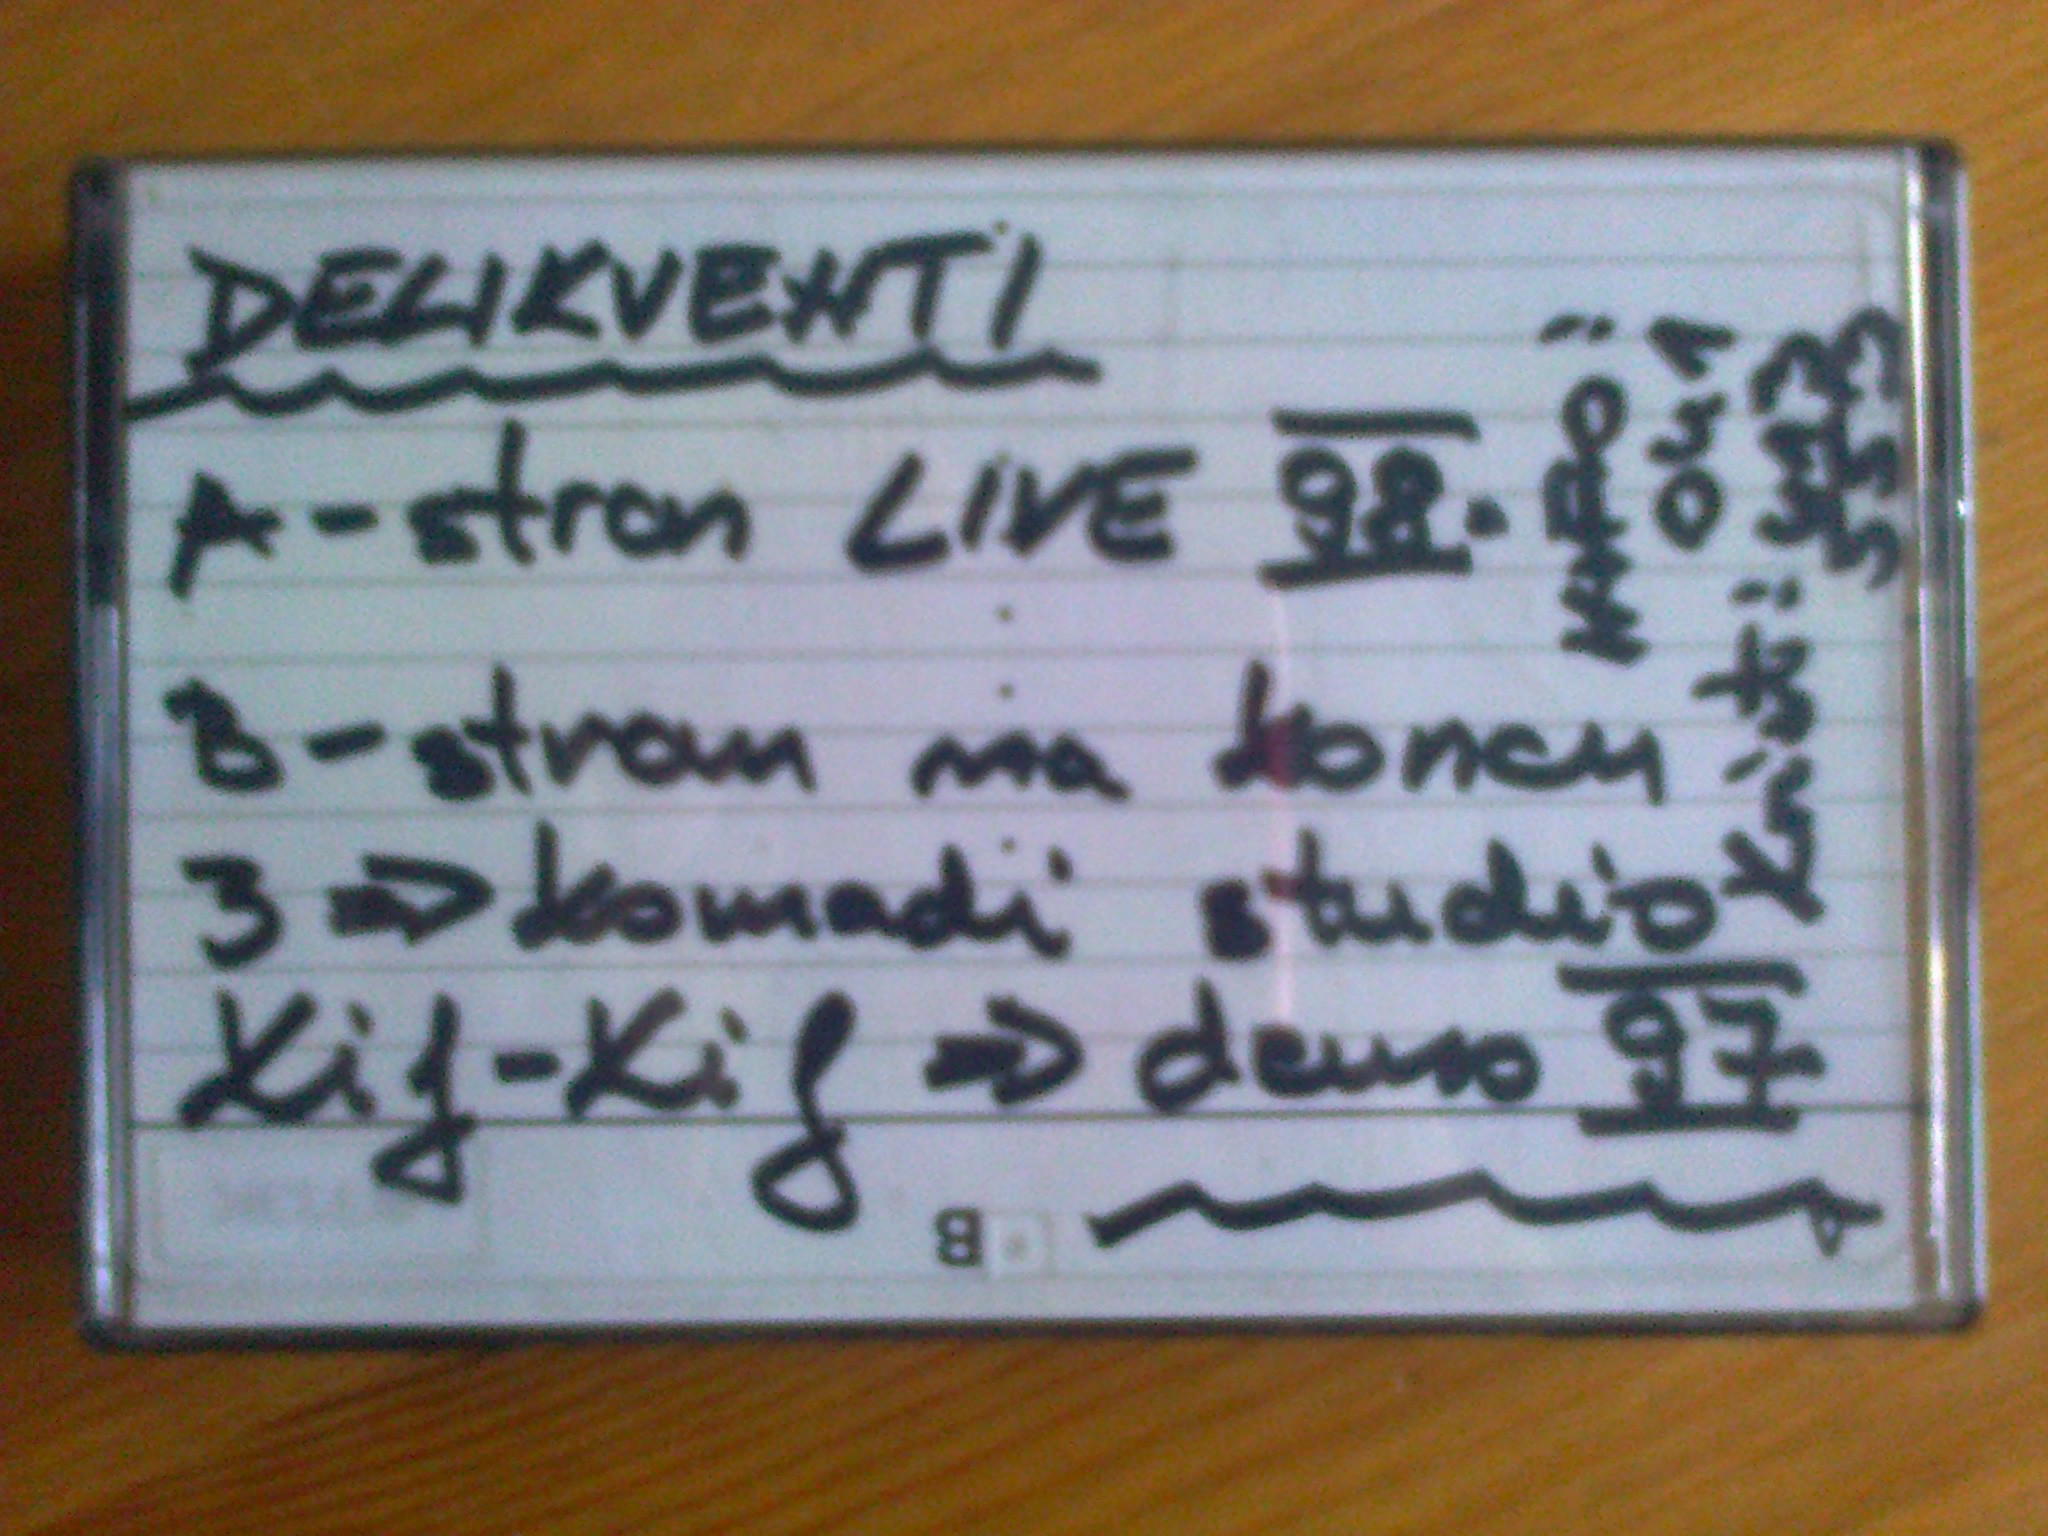 DELIKVENTI
A-stran LIVE 98.
B-stran na koncu
3 ⇒ komadi studio
Kif-Kif ⇒ demo 97
B
INFO:
041
Kristi: